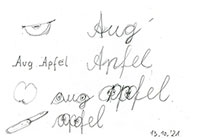 Aug
Aug Apfel Apfel
aug apfel
apfel
13.12.21